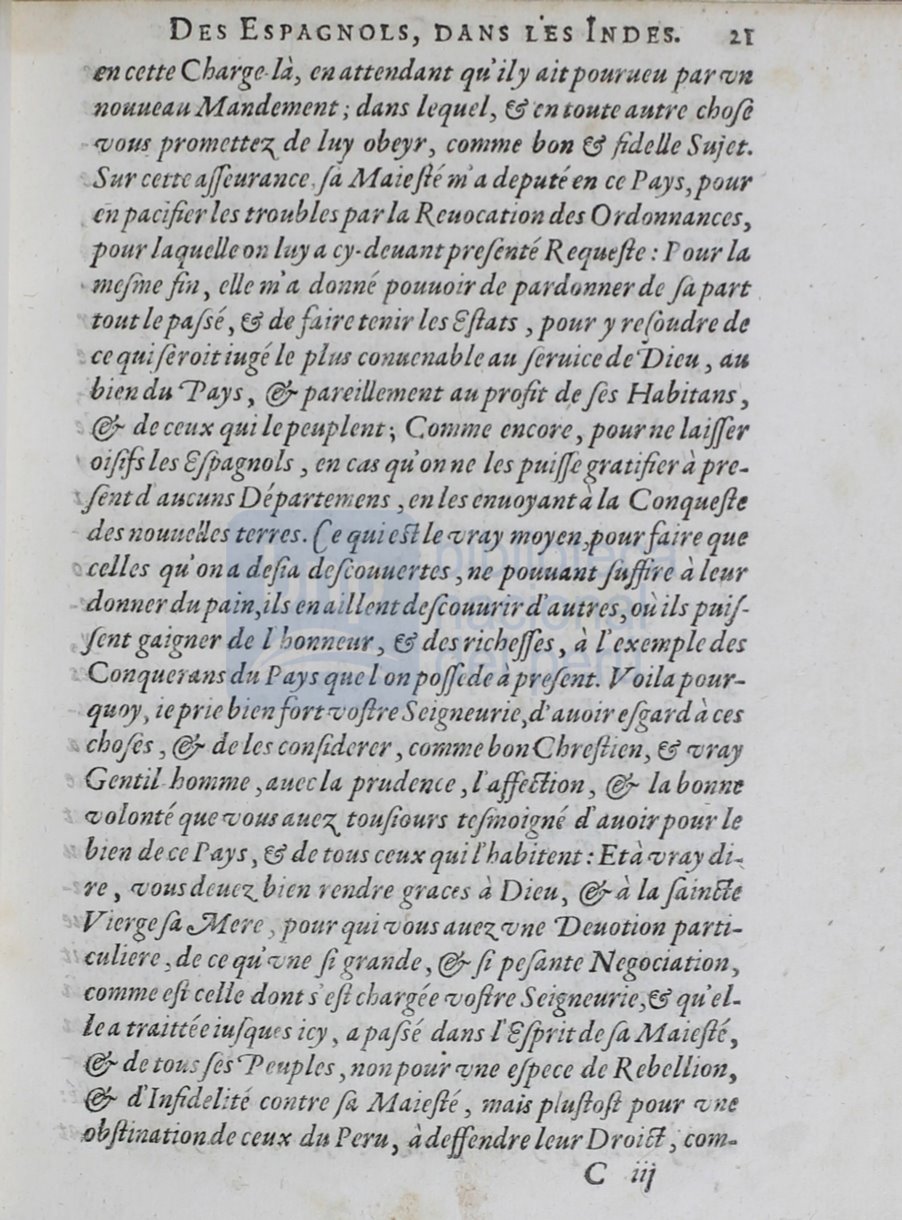 DES ESPAGNOLS, DANS LES INDES. 21
en cette Charge-là, en attendant qu'il y ait pourueu par vn
nouueau Mandement ; dans lequel, & en toute autre choſe
vous promettez de luy obeyr, comme bon & fidelle Sujet.
Sur cette aſſeurance, ſa Maieſté m'a deputé en ce Pays, pour
en pacifier les troubles par la Reuocation des Ordonnances,
pour laquelle on luy a cy-deuant preſenté Requeſte : Pour la
meſme fin, elle m'a donné pouuoir de pardonner de ſa part
tout le paſsé, & de faire tenir les Eſtats, pour y reſoudre de
ce qui ſeroit iugé le plus conuenable au ſeruice de Dieu, au
bien du Pays, & pareillement au profit de ſes Habitans,
& de ceux qui le peuplent ; Comme encore, pour ne laiſſer
oiſifs les Eſpagnols, en cas qu'on ne les puiſſe gratifier à pre-
ſent d'aucuns Départemens, en les enuoyant à la Conqueſte
des nouuelles terres. Ce qui eſt le vray moyen, pour faire que
celles qu'on a deſia deſcouuertes, ne pouuant ſuffire à leur
donner du pain, ils en aillent deſcouurir d'autres, où ils puiſ-
ſent gaigner de l'honneur, & des richeſſes, à l'exemple des
Conquerans du Pays que l'on poſſede à preſent. Voila pour-
quoy, ie prie bien fort voſtre Seigneurie, d'auoir eſgard à ces
choſes, & de les conſiderer, comme bon Chreſtien, & vray
Gentil-homme, auec la prudence, l'affection, & la bonne
volonté que vous auez touſiours teſmoigné d'auoir pour le
bien de ce Pays, & de tous ceux qui l'habitent : Et à vray di-
re, vous deuez bien rendre graces à Dieu, & à la ſaincte
Vierge ſa Mere, pour qui vous auez vne Deuotion parti-
culiere, de ce qu'vne ſi grande, & ſi peſante Negociation,
comme eſt celle dont s'eſt chargée voſtre Seigneurie, & qu'el-
le a traittée iuſques icy, a paſsé dans l'Eſprit de ſa Maieſté,
& de tous ſes Peuples, non pour vne eſpece de Rebellion,
& d'Infidelité contre ſa Maieſté, mais pluſtoſt pour vne
obſtination de ceux du Peru, à deffendre leur Droict, com-
C iij
biblioteca
nacional
del perú